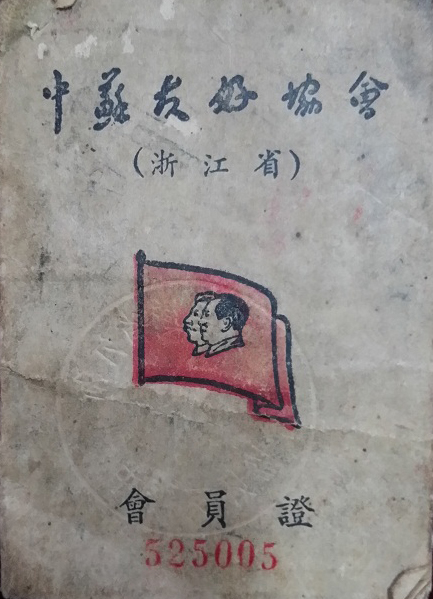 中蘇友好協會
(浙江省)
會員證
525005